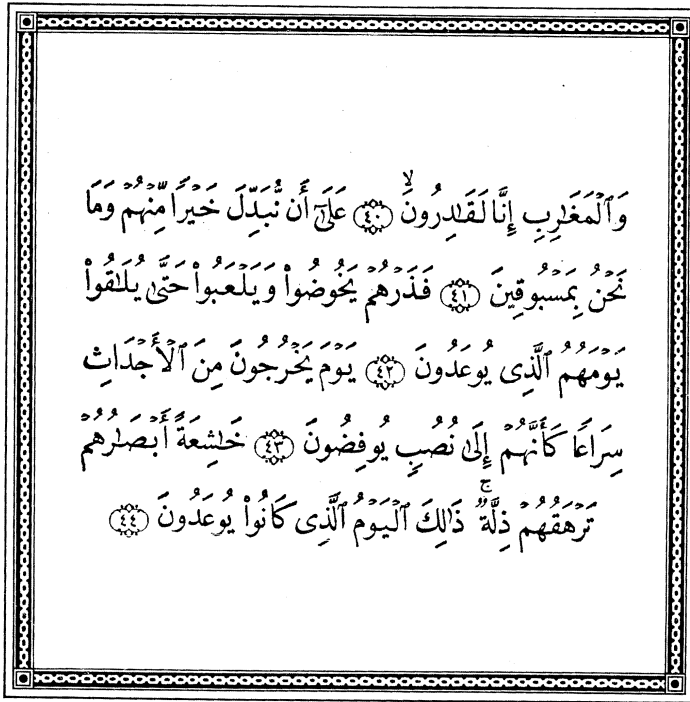 وَٱلۡمَغَٰرِبِ إِنَّا لَقَٰدِرُونَۙ ﴿٤٠﴾ عَلَىٰٓ أَن نُّبَدِّلَ خَيۡرًا مِّنۡهُمۡ وَمَا
نَحۡنُ بِمَسۡبُوقِينَ ﴿٤١﴾ فَذَرۡهُمۡ يَخُوضُواْ وَيَلۡعَبُواْ حَتَّىٰ يُلَٰقُواْ
يَوۡمَهُمُ ٱلَّذِى يُوعَدُونَ ﴿٤٢﴾ يَوۡمَ يَخۡرُجُونَ مِنَ ٱلۡأَجۡدَاثِ
سِرَاعًا كَأَنَّهُمۡ إِلَىٰ نُصُبٍ يُوفِضُونَ ﴿٤٣﴾ خَٰشِعَةً أَبۡصَٰرُهُمۡ
تَرۡهَقُهُمۡ ذِلَّةٌۚ ذَٰلِكَ ٱلۡيَوۡمُ ٱلَّذِى كَانُواْ يُوعَدُونَ ﴿٤٤﴾